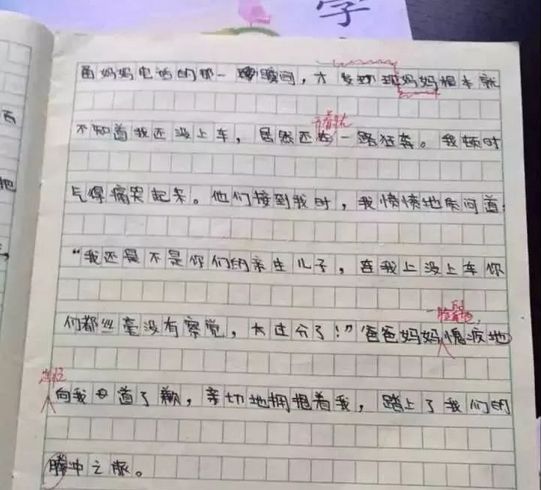 学
面妈妈电话的那一瞬间，才发现现妈妈根本就
不知道我还没上车，居然还在一路狂奔。我顿时
气得痛哭起来。他们接到我时，我愤愤地质问道：
“我还是不是你们的亲生儿子，连我上没上车你
们都丝毫没有察觉，太过分了！”爸爸妈妈愧疚地
向我道了歉，亲切地拥抱着我，踏上了我们的
腾冲之旅。